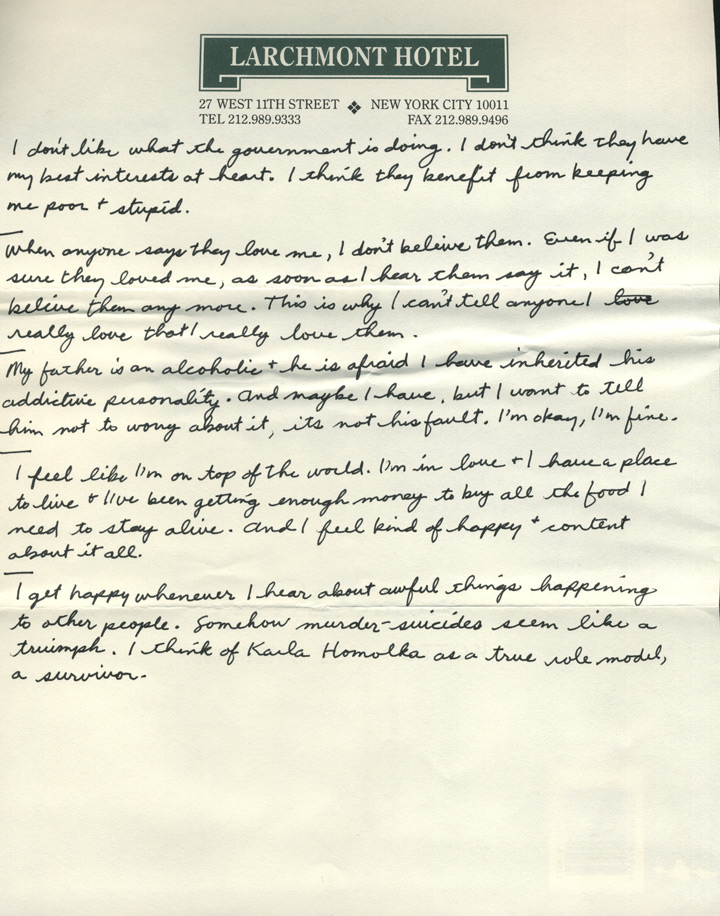 LARCHMONT HOTEL
27 WEST 11TH STREET ❖ NEW YORK CITY 10011
TEL 212.989.9333 FAX 212.989.9496
I don't like what the government is doing. I don't think they have
my best interests at heart. I think they benefit from keeping
me poor + stupid.
When anyone says they love me, I don't beleive them. Even if I was
sure they loved me, as soon as I hear them say it, I can't
belive them any more. This is why I can't tell anyone I love
really love that I really love them.
My father is an alcoholic + he is afraid I have inherited his
addictive personality. And maybe I have, but I want to tell
him not to worry about it, its not his fault. I'm okay, I'm fine.
I feel like I'm on top of the world. I'm in love + I have a place
to live + I've been getting enough money to buy all the food I
need to stay alive. And I feel kind of happy + content
about it all.
I get happy whenever I hear about awful things happening
to other people. Somehow murder-suicides seem like a
truimph. I think of Karla Homolka as a true role model,
a survivor.